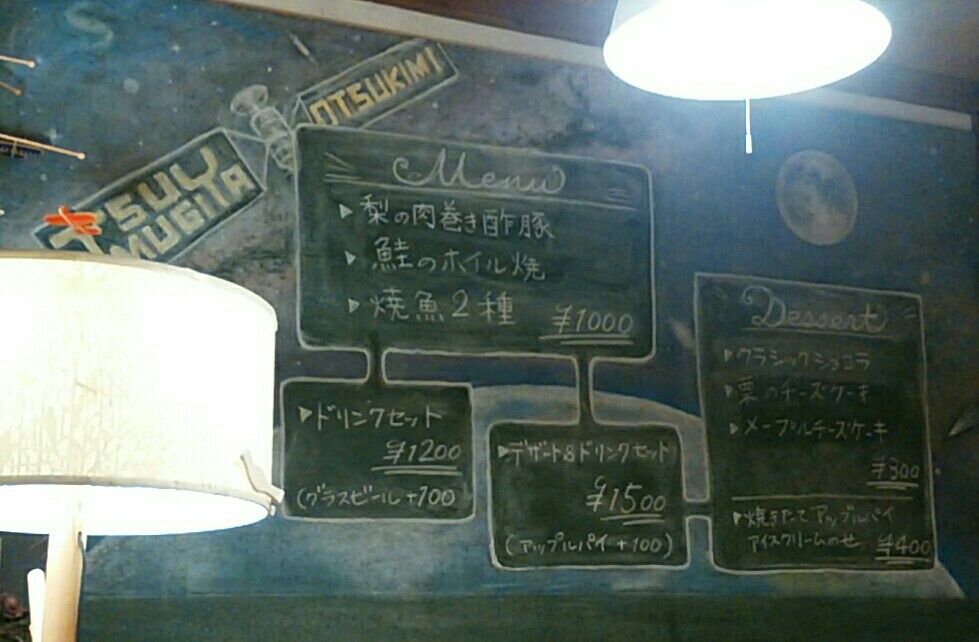 OTSUKIMI
TSUY
MUGITA
Menu
▶梨の肉巻き酢豚
▶鮭のホイル焼
▶焼魚2種
¥1000
▶ドリンクセット
¥1200
(グラスビール+100)
▶デザート&ドリンクセット
¥1500
(アップルパイ+100)
Dessert
▶クラシックショコラ
▶栗のチーズケーキ
▶メープルチーズケーキ
¥300
▶焼きたてアップルパイ
アイスクリームのせ ¥400